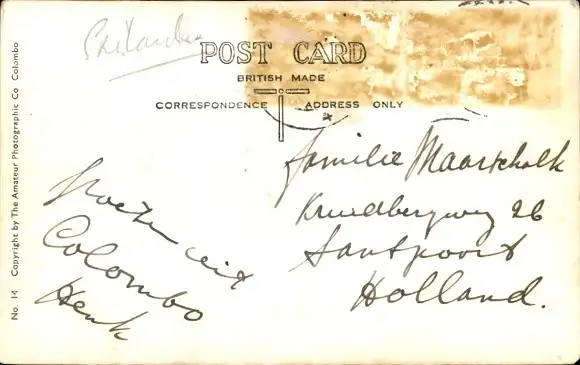 Sri Lanka
POST CARD
BRITISH MADE
CORRESPONDENCE
ADDRESS ONLY
No. 14 Copyright by The Amateur Photographic Co Colombo
Groeten uit
Colombo
Henk
familie Maarschalk
Kruidbergweg 26
Santpoort
Holland.